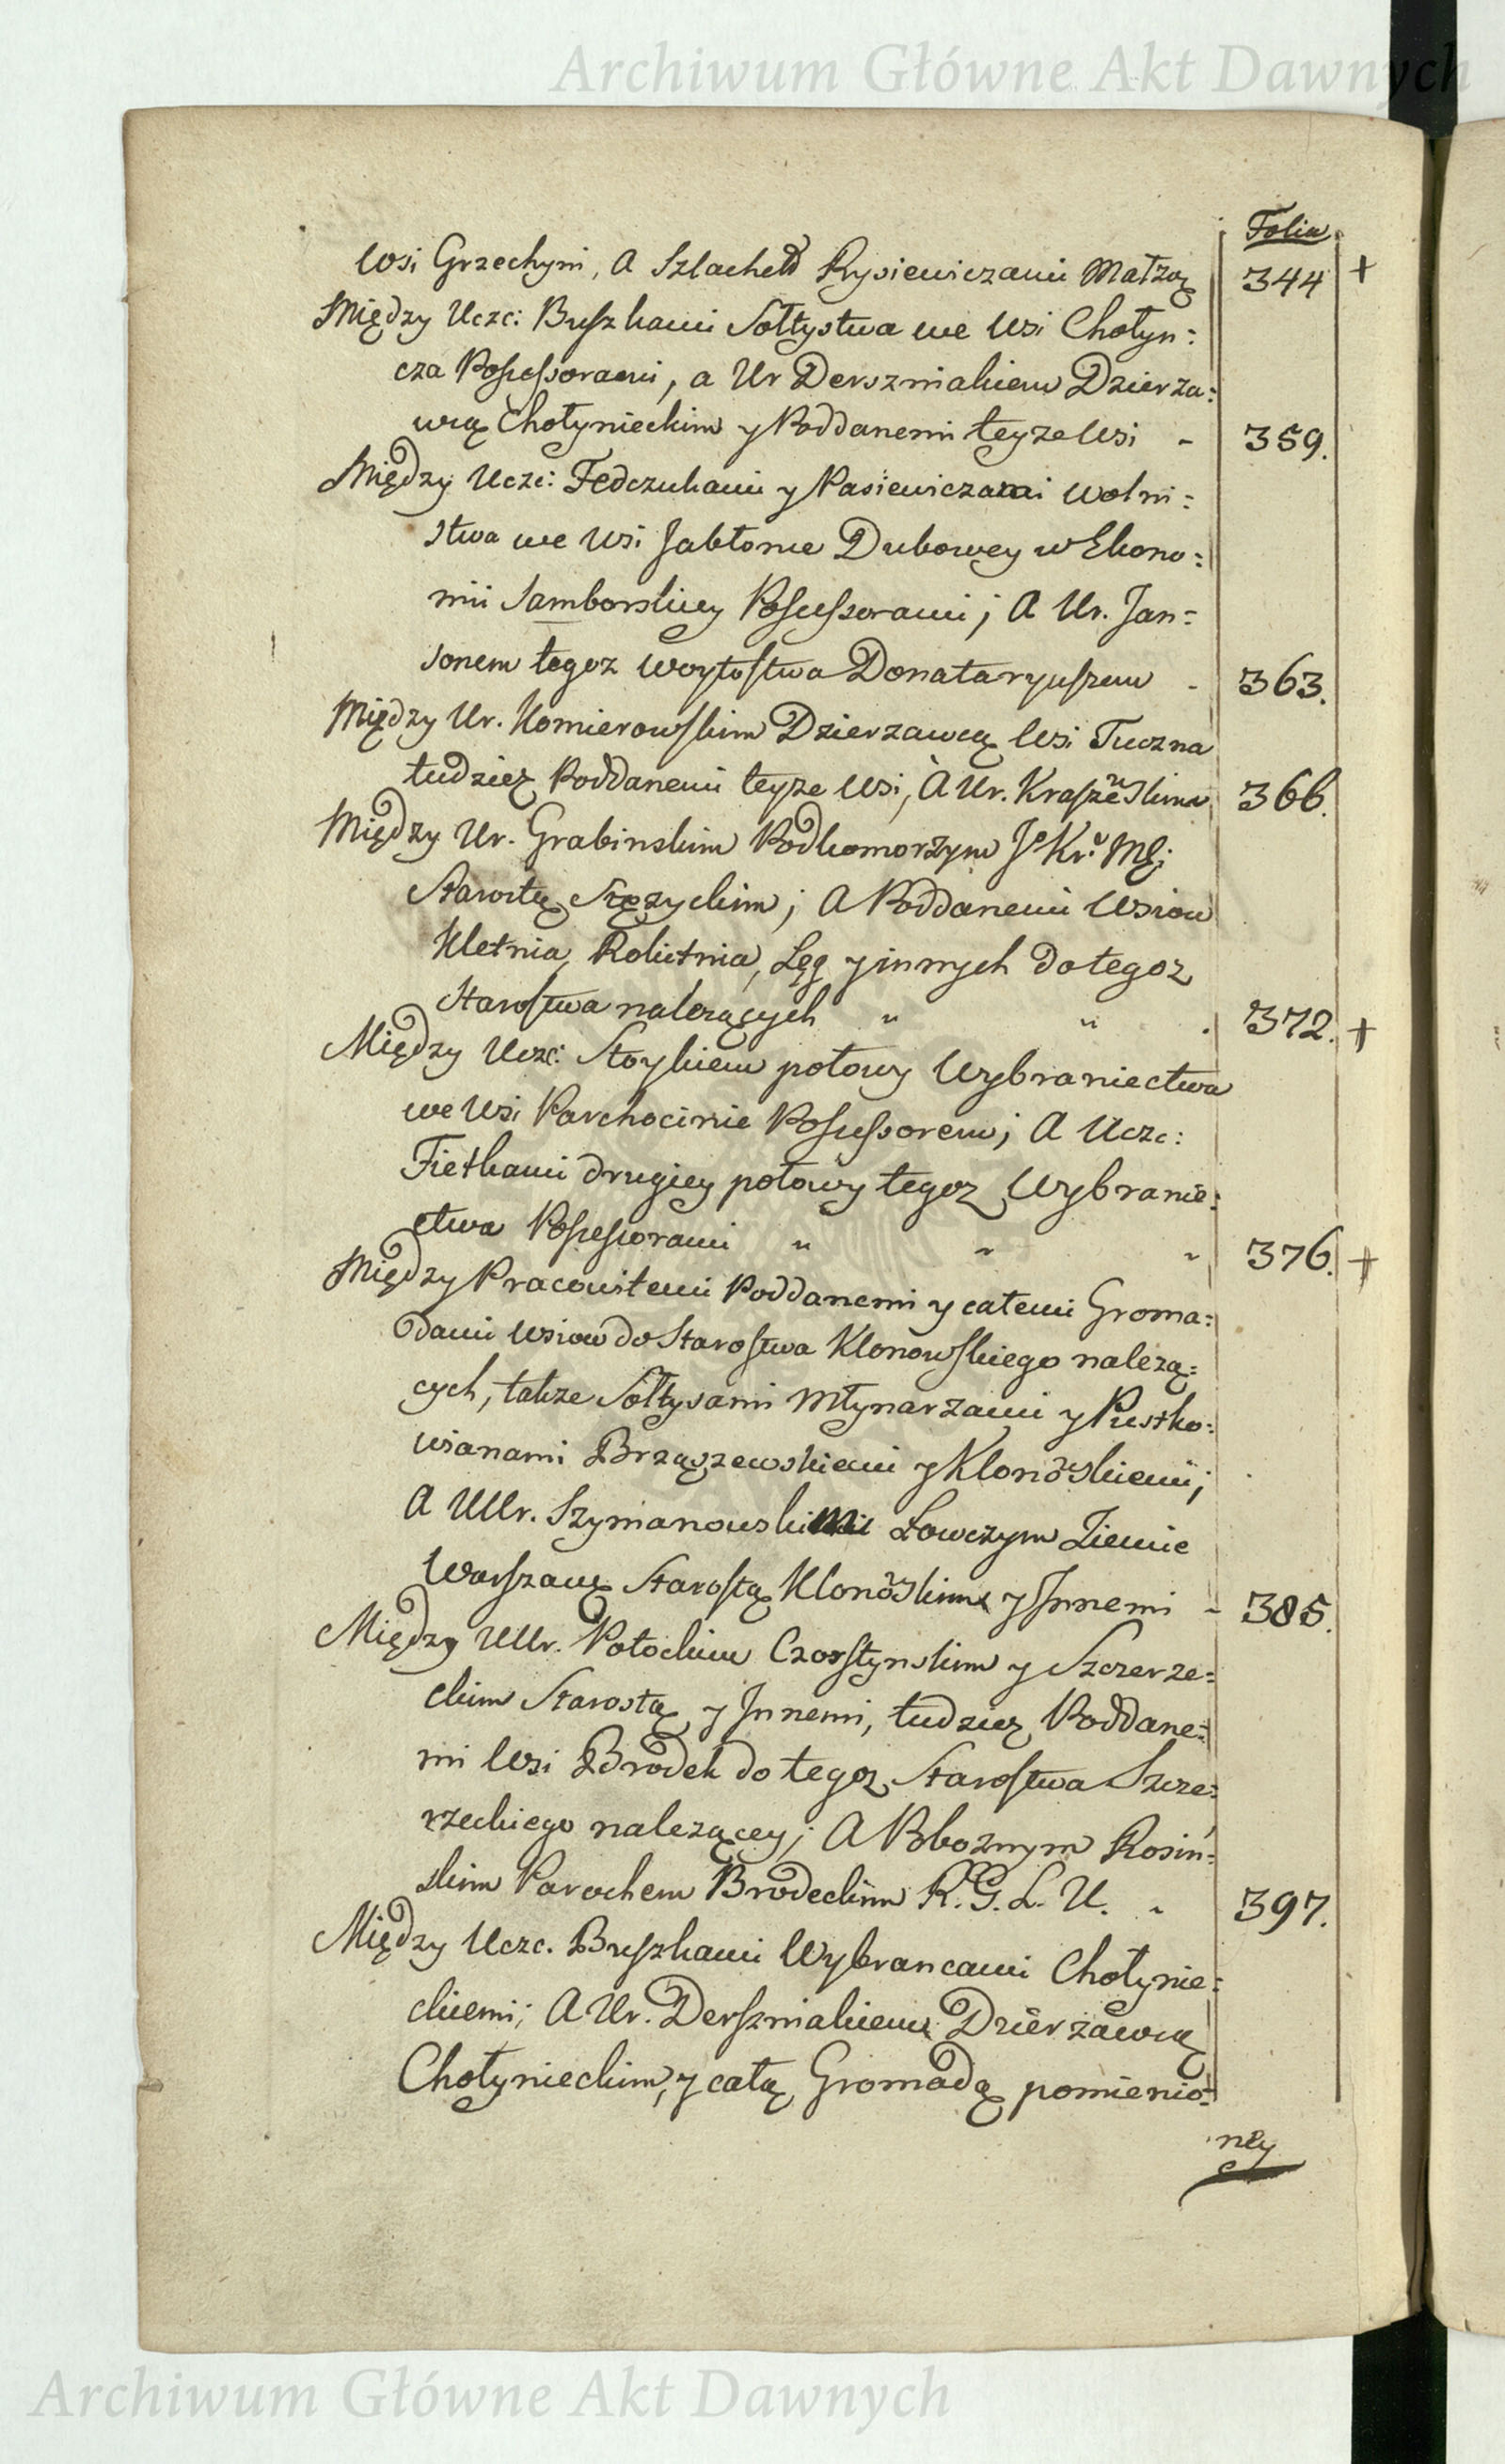 Archiwum Główne Akt Dawnych
Folia
Wsi Grzechyni, A Szlachetd Rysiewiczami Małżą 344 +
Między Uczc: Buszkami Sołtystwa we Wsi Chotyn:
cza Possessorami, a Ur Derszniakiem Dzierza:
wcą Chotynieckim y Poddanemi teyze Wsi - 359.
Między Uczc: Fedczukami y Pasiewiczami Wolni:
stwa we Wsi Jabłonce Dubowey w Ekono:
mii Samborskiey Possessorami; A Ur. Jan:
sonem tegoz Woytostwa Donataryuszem - 363.
Między Ur. Komierowskim Dzierzawcą Wsi Tuczna
tudziez Poddanemi teyze Wsi, A Ur. Kraszewskim 366.
Między Ur. Grabinskim Podkomorzym Je Kr: Mści
Starostą Stęzyckim; A Poddanemi Wsiow
Kletnia, Rokitnia, Lęg y innych do tegoz
Starostwa nalezących " " . 372. +
Między Uczc: Stoykiem połowy Wybraniectwa
we Wsi Parchocinie Possessorem; A Uczc:
Fietkami drugiey połowy tegoz Wybranie:
ctwa Possessorami " " " 376. +
Między Pracowitemi Poddanemi y całemi Groma:
dami Wsiow do Starostwa Klonowskiego nalezą:
cych, takze Sołtysami Młynarzami y Pustko:
wianami Brząszewskiemi y Klonowskiemi;
A UUr. Szymanowskimi Łowczym Ziemie
Warszawę Starostą Klonowskim y Innemi - 385.
Między UUr. Potockim Czorsztynskim y Szczerze:
ckim Starostą y Innemi, tudziez Poddane:
mi Wsi Brodek do tegoz Starostwa Szcze:
rzeckiego nalezącey; A Pboznym Rosiń:
skim Parochem Brodeckim R. G. L. U. - 397.
Między Uczc. Buszkami Wybrancami Chotynie:
ckiemi; A Ur. Derszniakiem Dzierzawcą
Chotynieckim, y całą Gromadą pomienio:
ney
Archiwum Główne Akt Dawnych